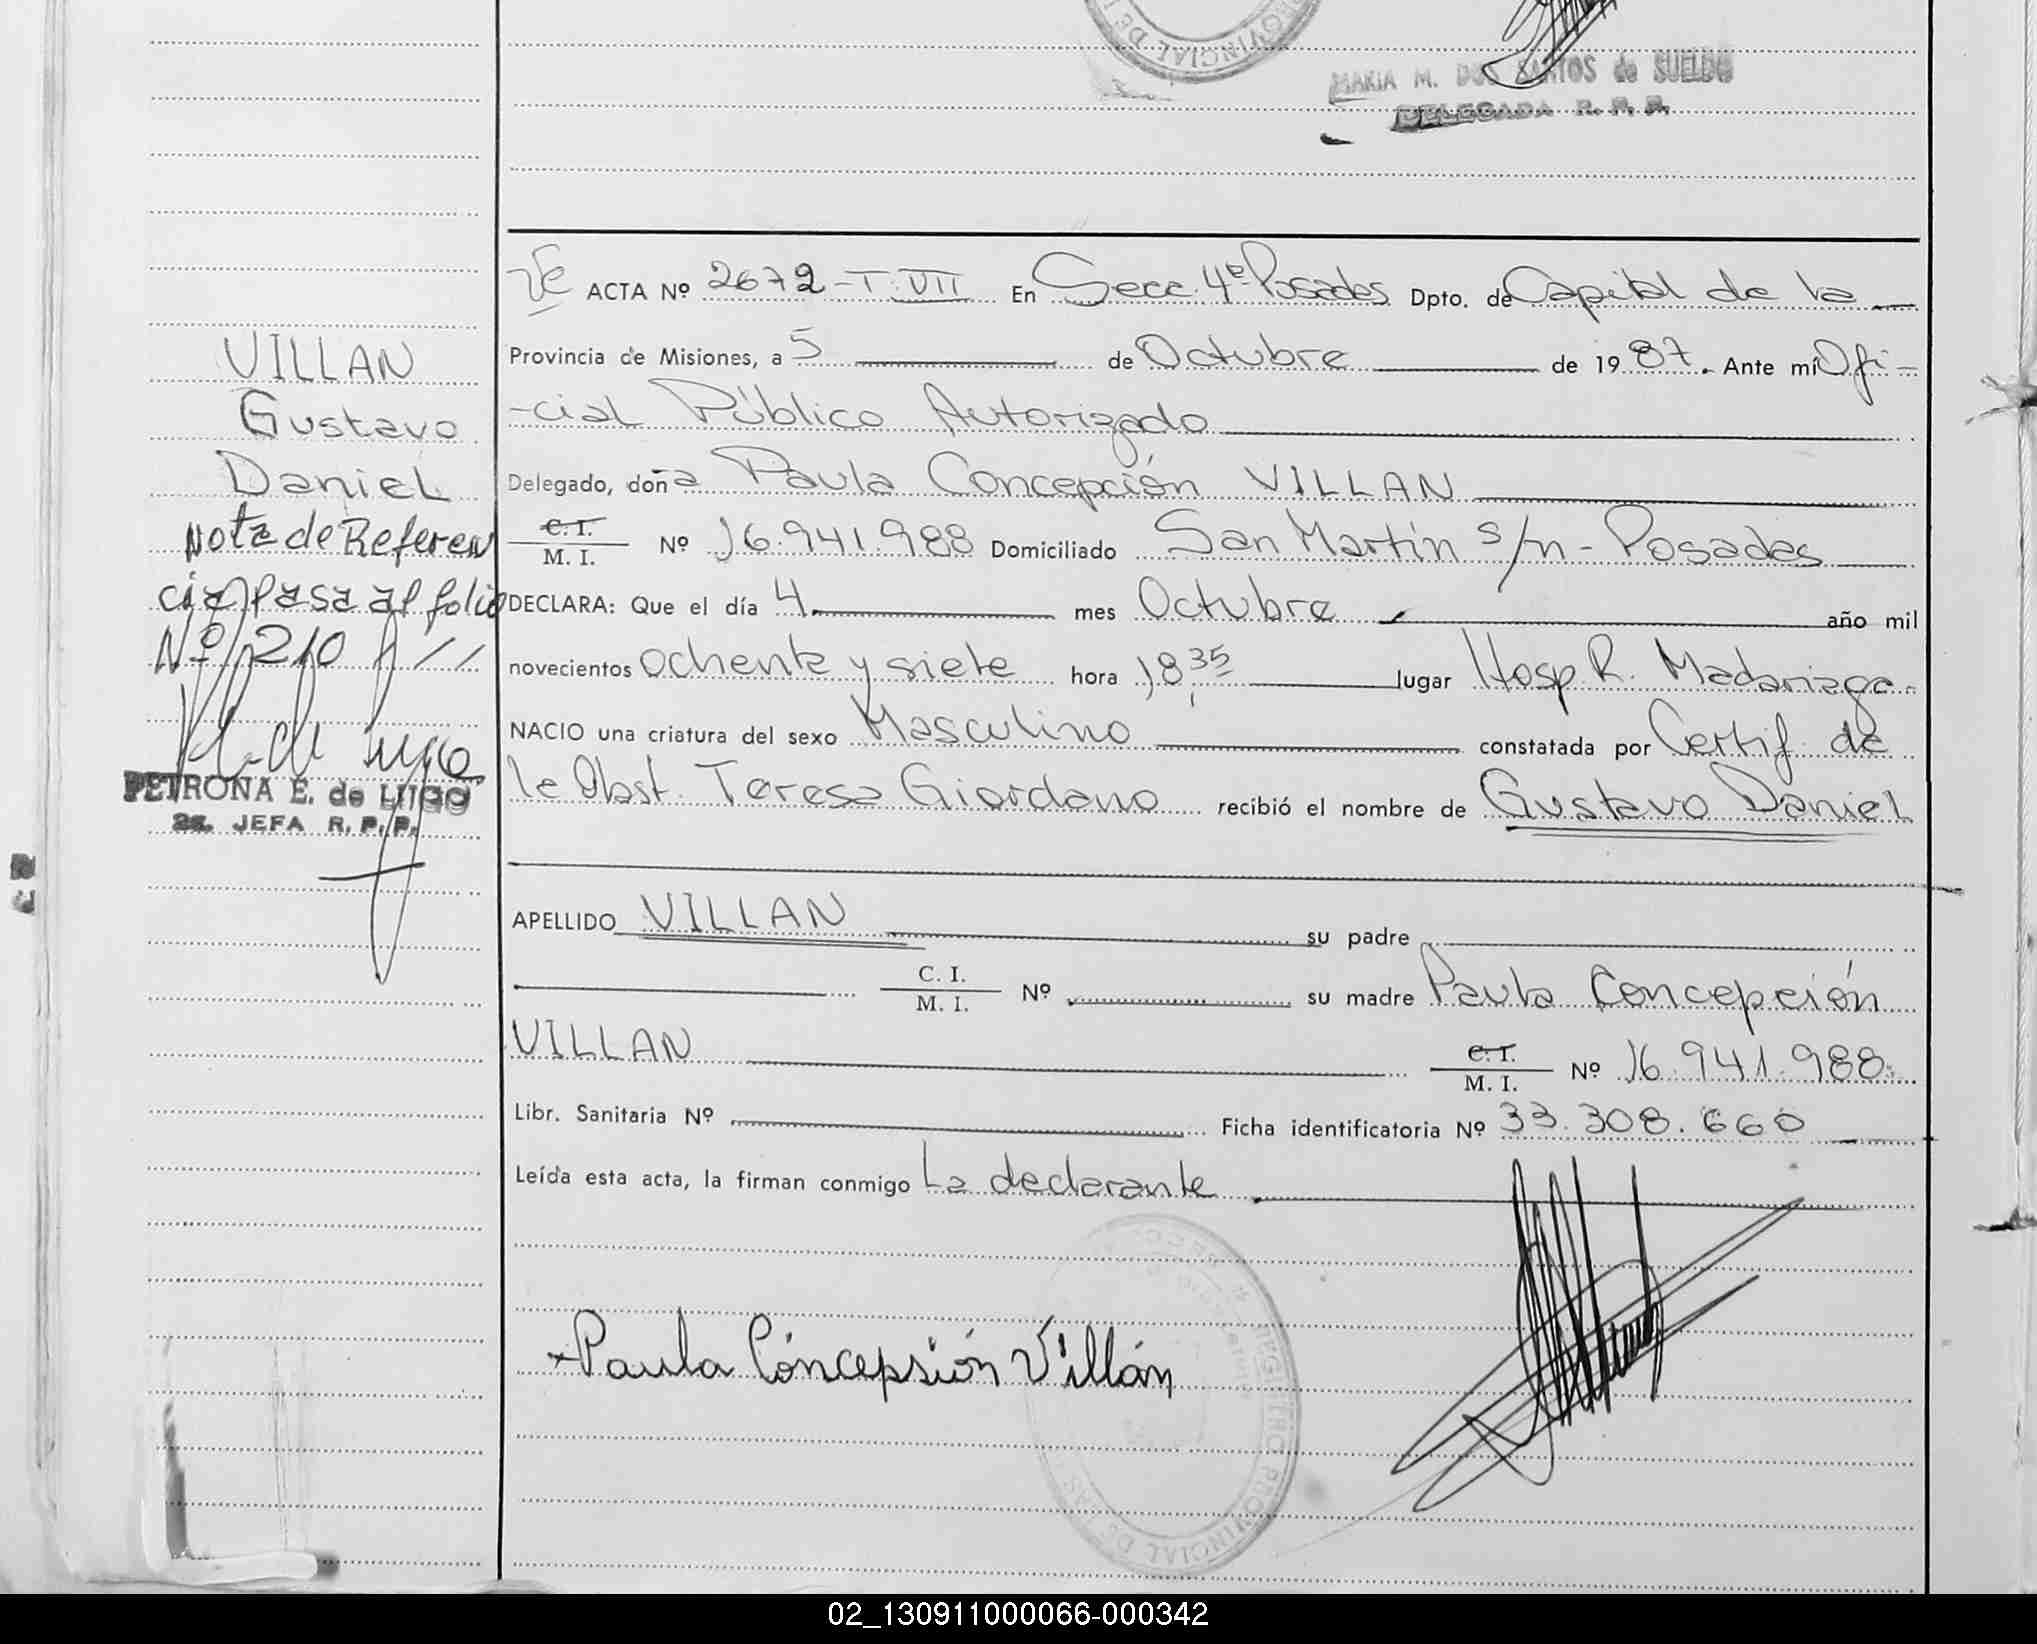 PROVINCIAL DE
MARIA M. DOS SANTOS de SUELDO
DELEGADA R. P. P.
ACTA Nº 2672-T.VII En Secc. 4ª Posadas Dpto. de Capital de la
Provincia de Misiones, a 5 de Octubre de 19 87. Ante mí Ofi-
-cial Público Autorizado
Delegado, doña Paula Concepción VILLAN
C. I.
M. I. Nº 16.941.988 Domiciliado San Martín s/n - Posadas
DECLARA: Que el día 4 mes Octubre año mil
novecientos ochenta y siete hora 18,35 lugar Hosp R. Madariaga.
NACIO una criatura del sexo Masculino constatada por Certif. de
la Obst. Teresa Giordano recibió el nombre de Gustavo Daniel
APELLIDO VILLAN su padre
C. I.
M. I. Nº su madre Paula Concepción
VILLAN C. I.
M. I. Nº 16.941.988.
Libr. Sanitaria Nº Ficha identificatoria Nº 33.308.660
Leída esta acta, la firman conmigo La declarante
Paula Concepsión Villán
REGISTRO PROVINCIAL DE
VILLAN
Gustavo
Daniel
Nota de Referen
cia pasa al folio
Nº 210 //
PETRONA E. de LUGO
2a. JEFA R. P. P.
02_130911000066-000342